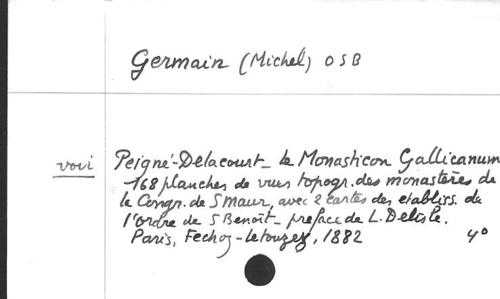 Germain (Michel) OSB
voir Peigné-Delacourt_ le Monasticon Gallicanum
168 planches de vues topogr. des monastères de
la Congr. de S Maur, avec 2 cartes des établiss. de
l'ordre de S Benoît_ préface de L. Delisle.
Paris, Fechoz-Letouzey, 1882 4°